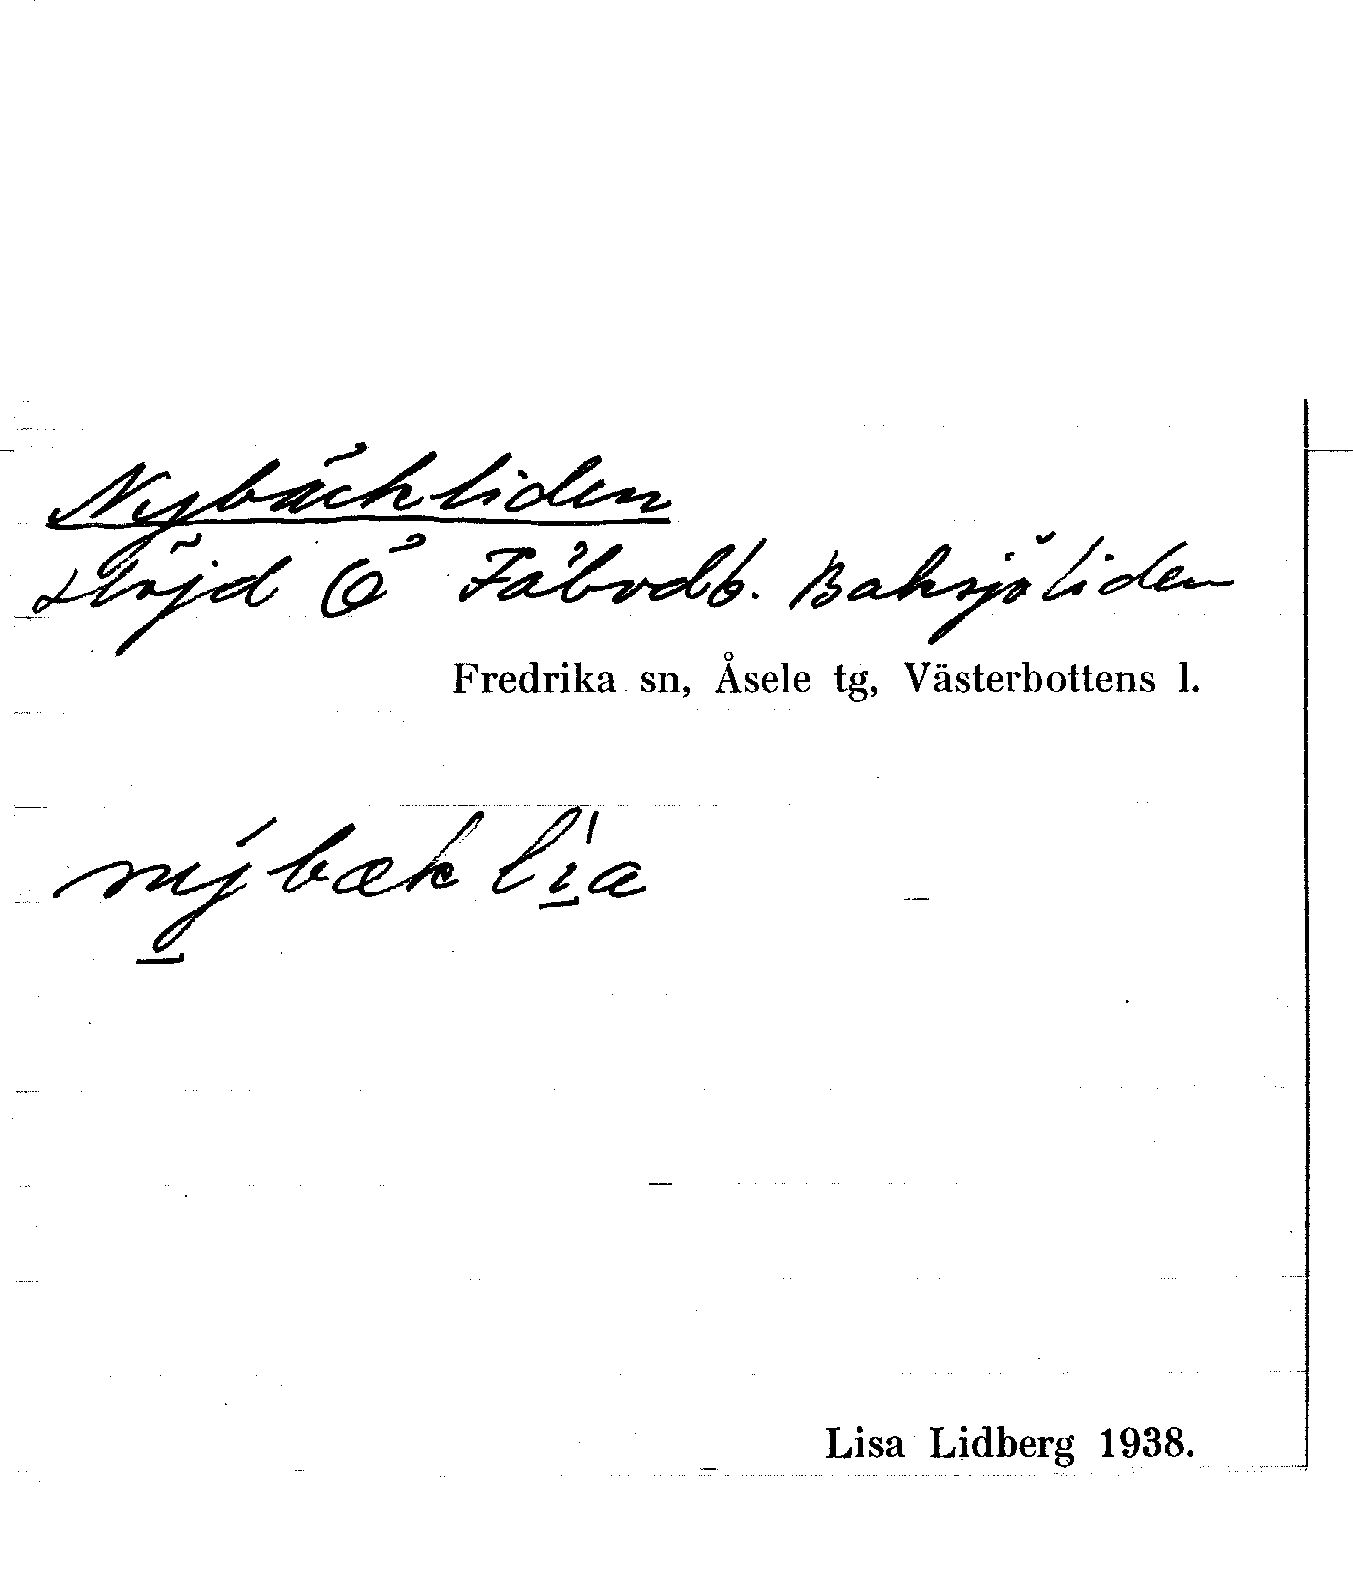 Nybäckliden
Höjd Ö Fäbodb. Baksjöliden
Fredrika sn, Åsele tg, Västerbottens l.
nýbæklia
Lisa Lidberg 1938.